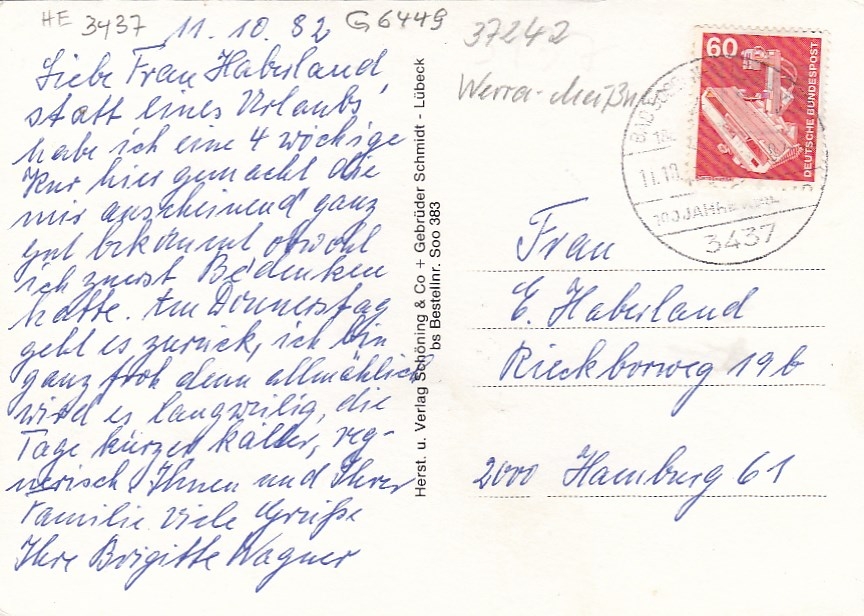 HE 3437 11.10.82 G6449
Liebe Frau Haberland,
statt eines Urlaubs
habe ich eine 4 wöchige
Kur hier gemacht die
mir anscheinend ganz
gut bekommt obwohl
ich zuerst Bedenken
hatte. Am Donnerstag
geht es zurück, ich bin
ganz froh denn allmählich
wird es langweilig, die
Tage kürzer kälter, reg-
nerisch. Ihnen und Ihrer
Familie viele Grüße
Ihre Brigitte Wagner
Herst. u. Verlag Schöning & Co + Gebrüder Schmidt - Lübeck
bs Bestellnr. Soo 383
37242
Werra-Meißn
60
DEUTSCHE BUNDESPOST
BAD SOOD
11.10.
100 JAHRE
3437
Frau
E. Haberland
Rieckborweg 19b
2000 Hamburg 61